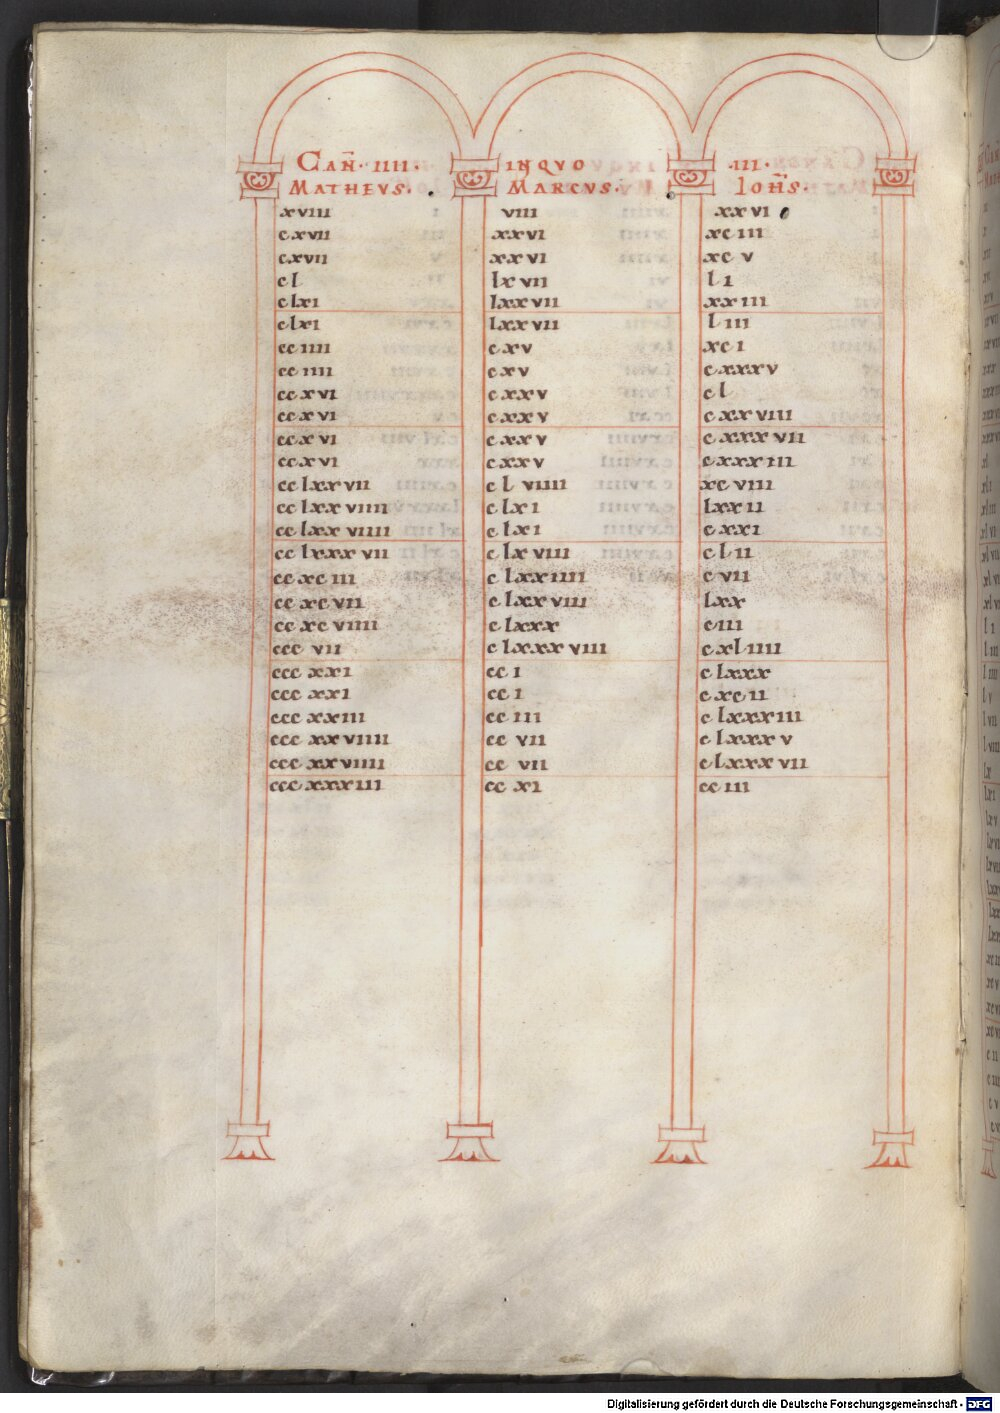 CAÑ · IIII · INQVO · III ·
MATHEVS · MARCVS · IOHS̄ ·
xviii viii xxvi
cxvii xxvi xciii
cxvii xxvi xcv
cl lxvii li
clxi lxxvii xxiii
clxi lxxvii liii
cciiii cxv xci
cciiii cxv cxxxv
ccxvi cxxv cl
ccxvi cxxv cxxviii
ccxvi cxxv cxxxvii
ccxvi cxxv cxxxiii
cclxxvii clviiii xcviii
cclxxviiii clxi lxxii
cclxxviiii clxi cxxi
cclxxxvii clxviii clii
ccxciii clxxiiii cvii
ccxcvii clxxviii lxx
ccxcviiii clxxx ciii
cccvii clxxxviii cxliiii
cccxxi cci clxxx
cccxxi cci cxcii
cccxxiii cciii clxxxiii
cccxxviiii ccvii clxxxv
cccxxviiii ccvii clxxxvii
cccxxxiii ccxi cciii
Digitalisierung gefördert durch die Deutsche Forschungsgemeinschaft - DFG